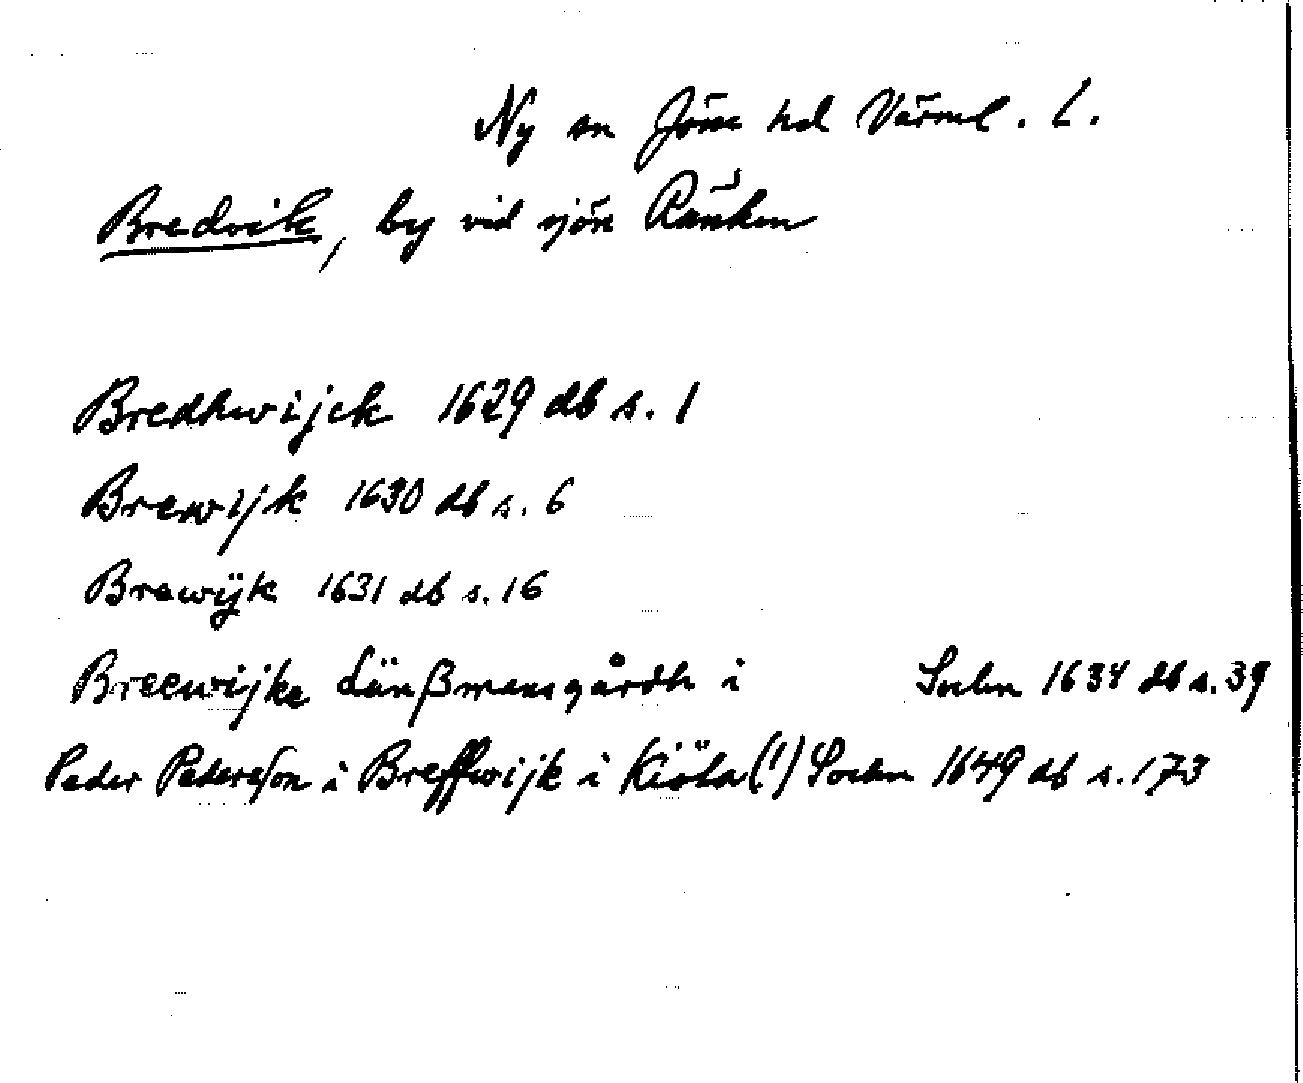 Ny sn Jöss hd Värml. L.
Bredvik, by vid sjön Ränken
Bredhwijck 1629 db s. 1
Brewijk 1630 db s. 6
Brewÿk 1631 db s. 16
Breewijke Länßmansgårdh i Sochn 1634 db s. 39
Peder Pederson i Breffwijk i Kiöla (!) Sochn 1649 db s. 173